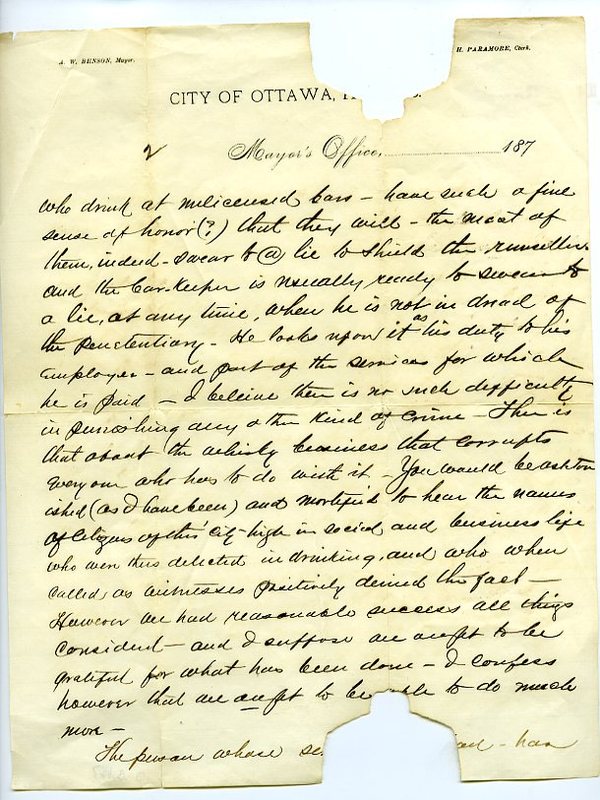 A. W. BENSON, Mayor.
H. PARAMORE, Clerk.
CITY OF OTTAWA,
2 Mayor's Office, 187
who drink at unlicensed bars - have such a fine
sense of honor (?) that they will - the most of
them, indeed - swear to @ lie to shield the rumseller
and the bar-keeper is usually ready to swear to
a lie, at any time, when he is not in dread of
the penetentiary - He looks upon it as his duty to his
employer - and part of the services for which
he is paid - I beleive there is no such difficulty
in punishing any other kind of crime - There is
that about the whisky business that corrupts
every one who has to do with it - You would be aston
ished (as I have been) and mortified to hear the names
of citizens of this city high in social and business life
who were thus detected in drinking, and who when
called, as witnesses positively denied the fact -
However we had reasonable success all things
considered - and I suppose we ought to be
grateful for what has been done - I confess
however that we ought to be able to do much
more -
The person whose - has